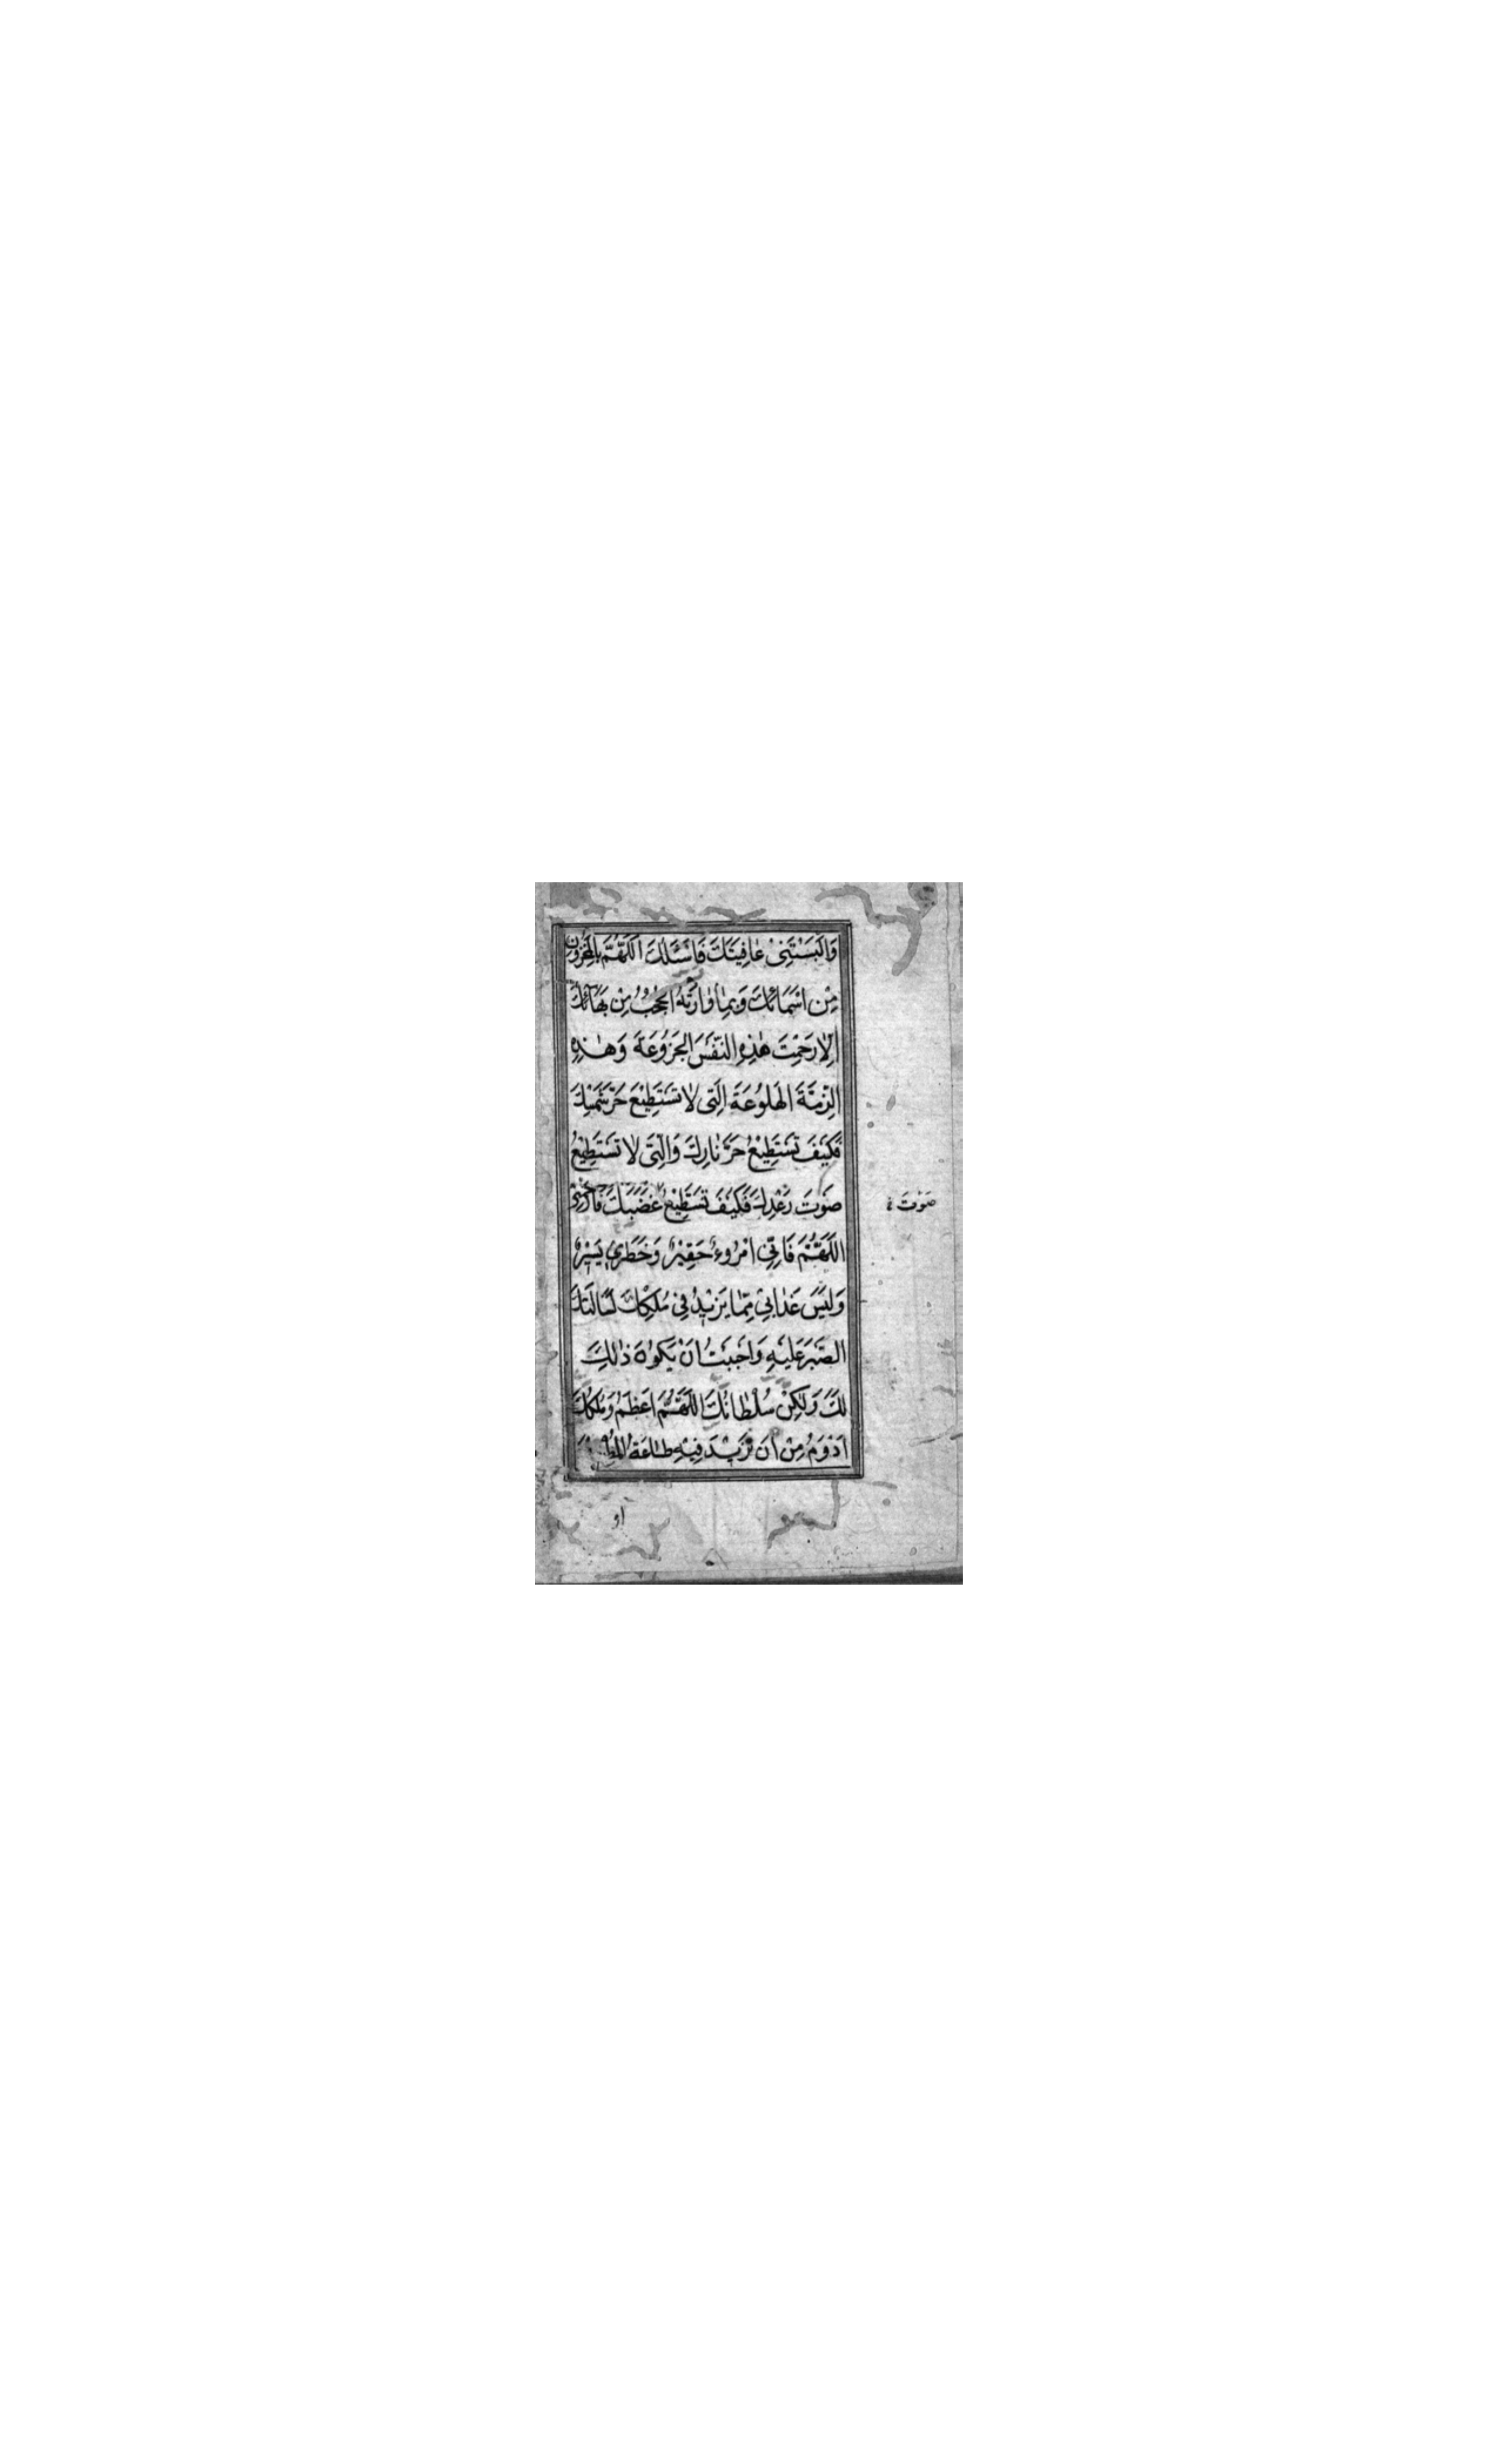 وَاَلْبَسْتَنِیْ عٰافِیَتَكَ فَاَسْئَلُكَ اَللّٰهُمَّ بِالْمَخْزُوْنِ
مِنْ اَسْمَآئِكَ وَبِمٰا وٰارَتْهُ الْحُجُبُ مِنْ بَهَآئِكَ
اِلّٰا رَحِمْتَ هٰذِهِ النَّفْسَ الْجَزُوْعَةَ وَهٰذِهِ
الرِّمَّةَ الْهَلُوْعَةَ الَّتِی لٰا تَسْتَطِیْعُ حَرَّ شَمْسِكَ
فَكَیْفَ تَسْتَطِیْعُ حَرَّ نٰارِكَ وَالَّتِیْ لٰا تَسْتَطِیْعُ
صَوْتَ رَعْدِكَ فَكَیْفَ تَسْتَطِیْعُ غَضَبَكَ فَارْحَمْنِیْ
صَوْتَ
اَللّٰهُمَّ فَاِنِّی امْرُوءٌ حَقِیْرٌ وَخَطَرِیْ یَسِیْرٌ
وَلَیْسَ عَذٰابِیْ مِمّٰا یَزِیْدُ فِیْ مُلْكِكَ لَسَاَلْتُكَ
الصَّبْرَ عَلَیْهِ وَاَحْبَبْتُ اَنْ یَكُوْنَ ذٰلِكَ
لَكَ وَلٰكِنْ سُلْطٰانُكَ اَللّٰهُمَّ اَعْظَمُ وَمُلْكُكَ
اَدْوَمُ مِنْ اَنْ تَزِیْدَ فِیْهِ طٰاعَةُ الْمُطِیْعِیْنَ
او